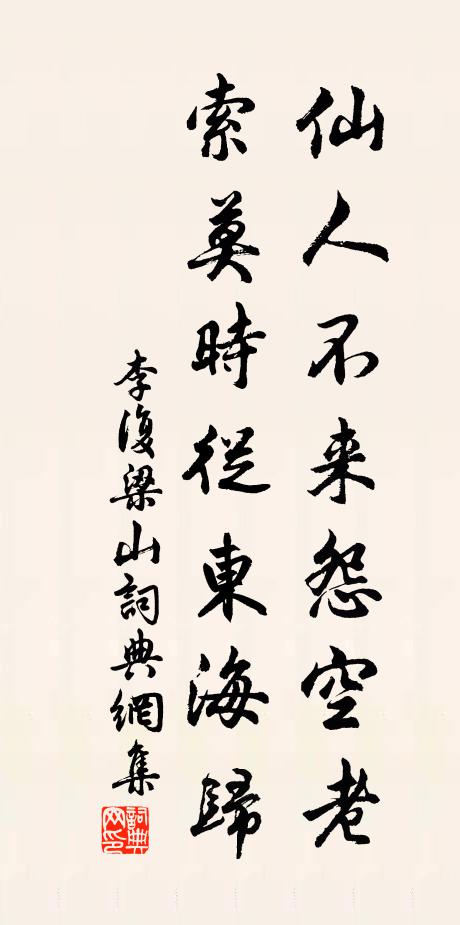 仙人不来怨空老
索莫時從東海歸
李復梁山詞典網集
詞典网印